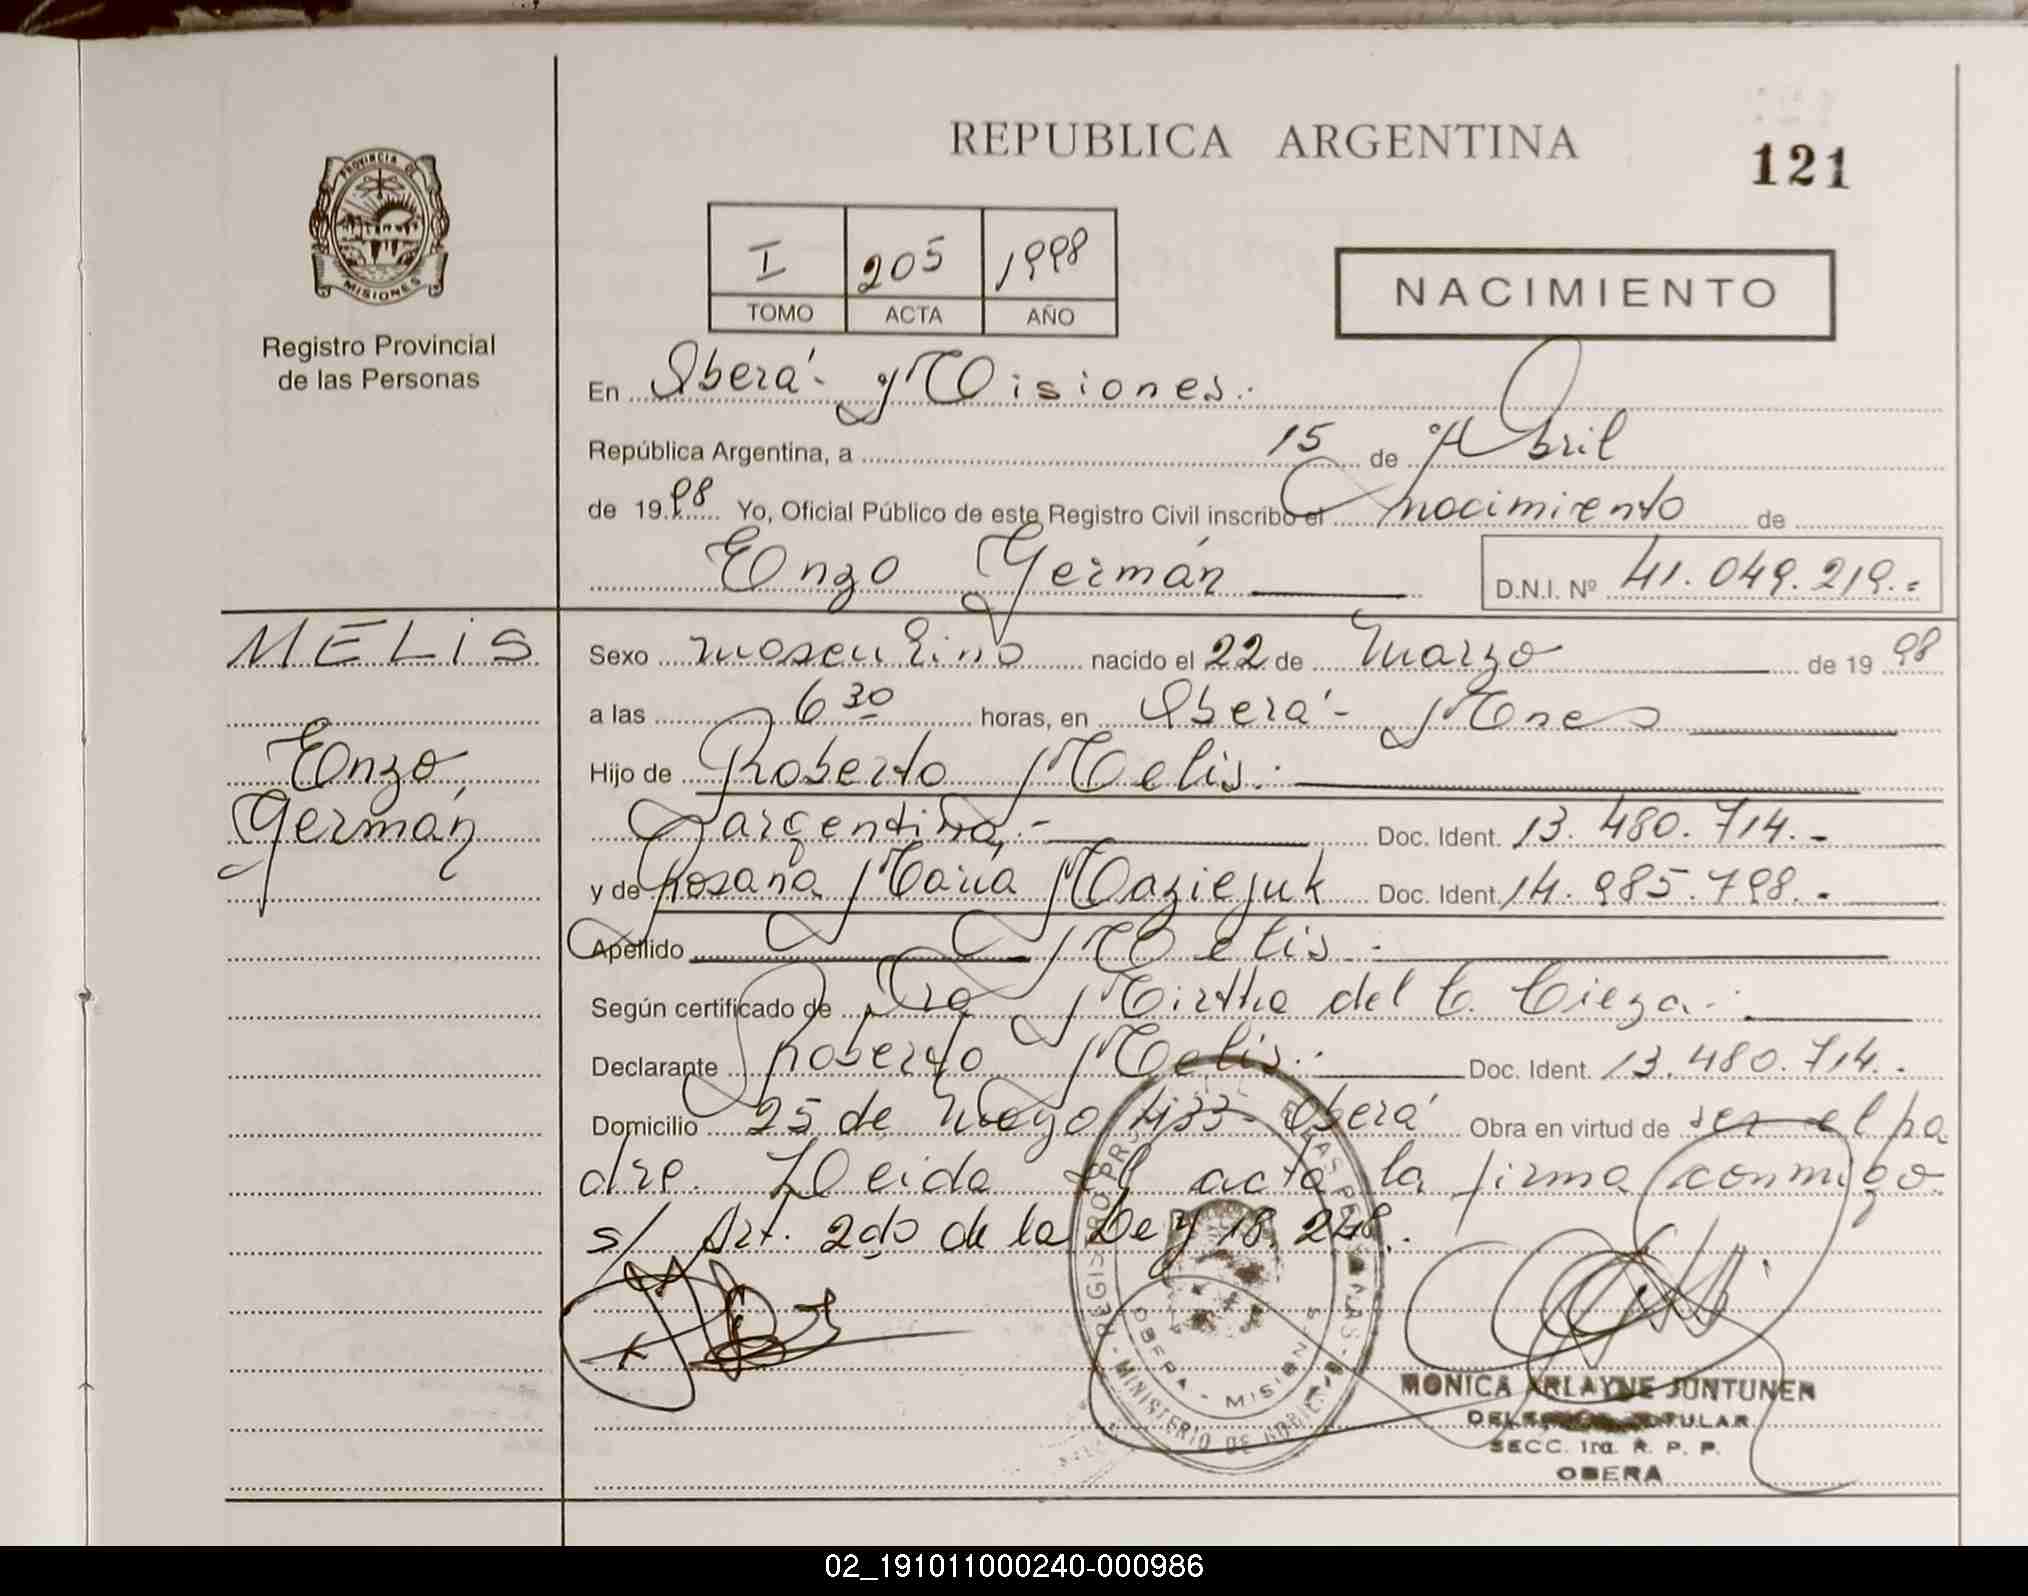 REPUBLICA ARGENTINA
121
PROVINCIA DE
MISIONES
Registro Provincial
de las Personas
I 205 1998
TOMO ACTA AÑO
NACIMIENTO
En Oberá - Misiones.
República Argentina, a 15 de Abril
de 1998 Yo, Oficial Público de este Registro Civil inscribo el nacimiento de
Enzo Germán D.N.I. Nº 41.049.219.=
MELIS
Enzo
Germán
Sexo masculino nacido el 22 de Marzo de 19 98
a las 6 30 horas, en Oberá - Mnes
Hijo de Roberto Melis.
argentina.- Doc. Ident. 13.480.714.-
y de Rosana María Maziejuk Doc. Ident. 14.985.798.-
Apellido Melis.
Según certificado de Dra Mirtha del C. Cieza.
Declarante Roberto Melis. Doc. Ident. 13.480.714.-
Domicilio 25 de Mayo 433 - Oberá Obra en virtud de ser el pa
dre. Leida el acta la firma conmigo
s/ Art. 2do de la Ley 18.248.
OBERA - MISIONES
MINISTERIO DE GOBIERNO
MONICA ARLAYNE JUNTUNEN
TITULAR
SECC. 1ra. R. P. P.
OBERA
02_191011000240-000986